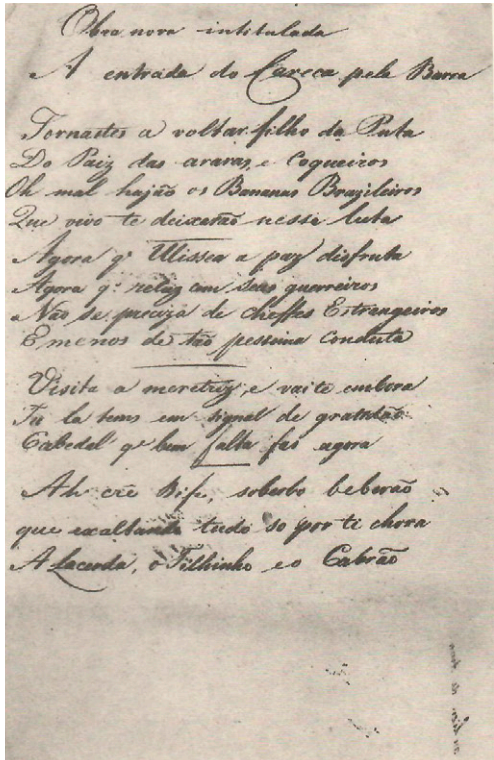 Obra nova intitulada
A entrada do Careca pela Barra
Tornastes a voltar filho da Puta
Do Paiz das araras, e Coqueiros
Oh mal hajão os Bananas Brazileiros
Que vivo te deixarão nessa luta
Agora q' Ulissea a paz disfruta
Agora q' reluz com seus guerreiros
Não se preciza de cheffes Estrangeiros
E menos de tão pessima conducta
Visita a meretriz, e vai te embora
Tu la tens em signal de gratidão
Cabedel q' bem falta fas agora
Ah cré Bife, soberbo beberão
que exaltando tudo so por ti chora
A Lacerda, o Filhinho e o Cabrão